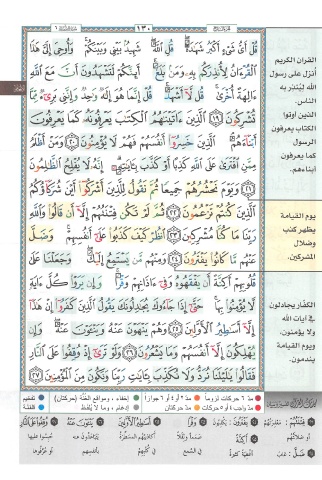 ١٣٠
قُلْ أَىُّ شَىْءٍ أَكْبَرُ شَهَـٰدَةً ۖ قُلِ ٱللَّهُ ۖ شَهِيدٌۢ بَيْنِى وَبَيْنَكُمْ ۚ وَأُوحِىَ إِلَىَّ هَـٰذَا
ٱلْقُرْءَانُ لِأُنذِرَكُم بِهِۦ وَمَنۢ بَلَغَ ۚ أَئِنَّكُمْ لَتَشْهَدُونَ أَنَّ مَعَ ٱللَّهِ
ءَالِهَةً أُخْرَىٰ ۚ قُل لَّآ أَشْهَدُ ۚ قُلْ إِنَّمَا هُوَ إِلَـٰهٌ وَٰحِدٌ وَإِنَّنِى بَرِىٓءٌ مِّمَّا
تُشْرِكُونَ ﴿١٩﴾ ٱلَّذِينَ ءَاتَيْنَـٰهُمُ ٱلْكِتَـٰبَ يَعْرِفُونَهُۥ كَمَا يَعْرِفُونَ
أَبْنَآءَهُمُ ۘ ٱلَّذِينَ خَسِرُوٓا۟ أَنفُسَهُمْ فَهُمْ لَا يُؤْمِنُونَ ﴿٢٠﴾ وَمَنْ أَظْلَمُ
مِمَّنِ ٱفْتَرَىٰ عَلَى ٱللَّهِ كَذِبًا أَوْ كَذَّبَ بِـَٔايَـٰتِهِۦٓ ۗ إِنَّهُۥ لَا يُفْلِحُ ٱلظَّـٰلِمُونَ
﴿٢١﴾ وَيَوْمَ نَحْشُرُهُمْ جَمِيعًا ثُمَّ نَقُولُ لِلَّذِينَ أَشْرَكُوٓا۟ أَيْنَ شُرَكَآؤُكُمُ
ٱلَّذِينَ كُنتُمْ تَزْعُمُونَ ﴿٢٢﴾ ثُمَّ لَمْ تَكُن فِتْنَتُهُمْ إِلَّآ أَن قَالُوا۟ وَٱللَّهِ
رَبِّنَا مَا كُنَّا مُشْرِكِينَ ﴿٢٣﴾ ٱنظُرْ كَيْفَ كَذَبُوا۟ عَلَىٰٓ أَنفُسِهِمْ ۚ وَضَلَّ
عَنْهُم مَّا كَانُوا۟ يَفْتَرُونَ ﴿٢٤﴾ وَمِنْهُم مَّن يَسْتَمِعُ إِلَيْكَ ۖ وَجَعَلْنَا عَلَىٰ
قُلُوبِهِمْ أَكِنَّةً أَن يَفْقَهُوهُ وَفِىٓ ءَاذَانِهِمْ وَقْرًا ۚ وَإِن يَرَوْا۟ كُلَّ ءَايَةٍ
لَّا يُؤْمِنُوا۟ بِهَا ۚ حَتَّىٰٓ إِذَا جَآءُوكَ يُجَـٰدِلُونَكَ يَقُولُ ٱلَّذِينَ كَفَرُوٓا۟ إِنْ هَـٰذَآ
إِلَّآ أَسَـٰطِيرُ ٱلْأَوَّلِينَ ﴿٢٥﴾ وَهُمْ يَنْهَوْنَ عَنْهُ وَيَنْـَٔوْنَ عَنْهُ ۖ وَإِن
يُهْلِكُونَ إِلَّآ أَنفُسَهُمْ وَمَا يَشْعُرُونَ ﴿٢٦﴾ وَلَوْ تَرَىٰٓ إِذْ وُقِفُوا۟ عَلَى ٱلنَّارِ
فَقَالُوا۟ يَـٰلَيْتَنَا نُرَدُّ وَلَا نُكَذِّبَ بِـَٔايَـٰتِ رَبِّنَا وَنَكُونَ مِنَ ٱلْمُؤْمِنِينَ ﴿٢٧﴾
القرآن الكريم
أنزل على رسول
الله ليُنذر به
الناس.
الذين أوتوا
الكتاب يعرفون
الرسول
كما يعرفون
أبناءهم.
يوم القيامة
يظهر كذب
وضلال
المشركين.
الكفار يجادلون
في آيات الله
ولا يؤمنون.
ويوم القيامة
يندمون.
مدّ ٦ حركات لزوماً
مدّ ٢ أو ٤ أو ٦ جوازاً
إخفاء، ومواقع الغنّة (حركتان)
تفخيم
مدّ واجب ٤ أو ٥ حركات
مدّ حركتان
إدغام، وما لا يُلفظ
قلقلة